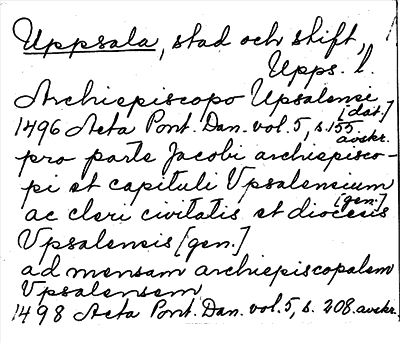 Uppsala, stad och stift,
Upps. l.
Archiepiscopo Upsalensi
[dat.]
1496 Acta Pont. Dan. vol. 5, s. 155.
avskr.
pro parte Jacobi archiepisco-
pi et capituli Vpsalensium
[gen.]
ac cleri civitatis et diocesis
Vpsalensis [gen.]
ad mensam archiepiscopalem
Vpsalensem
1498 Acta Pont. Dan. vol. 5, s. 208. avskr.